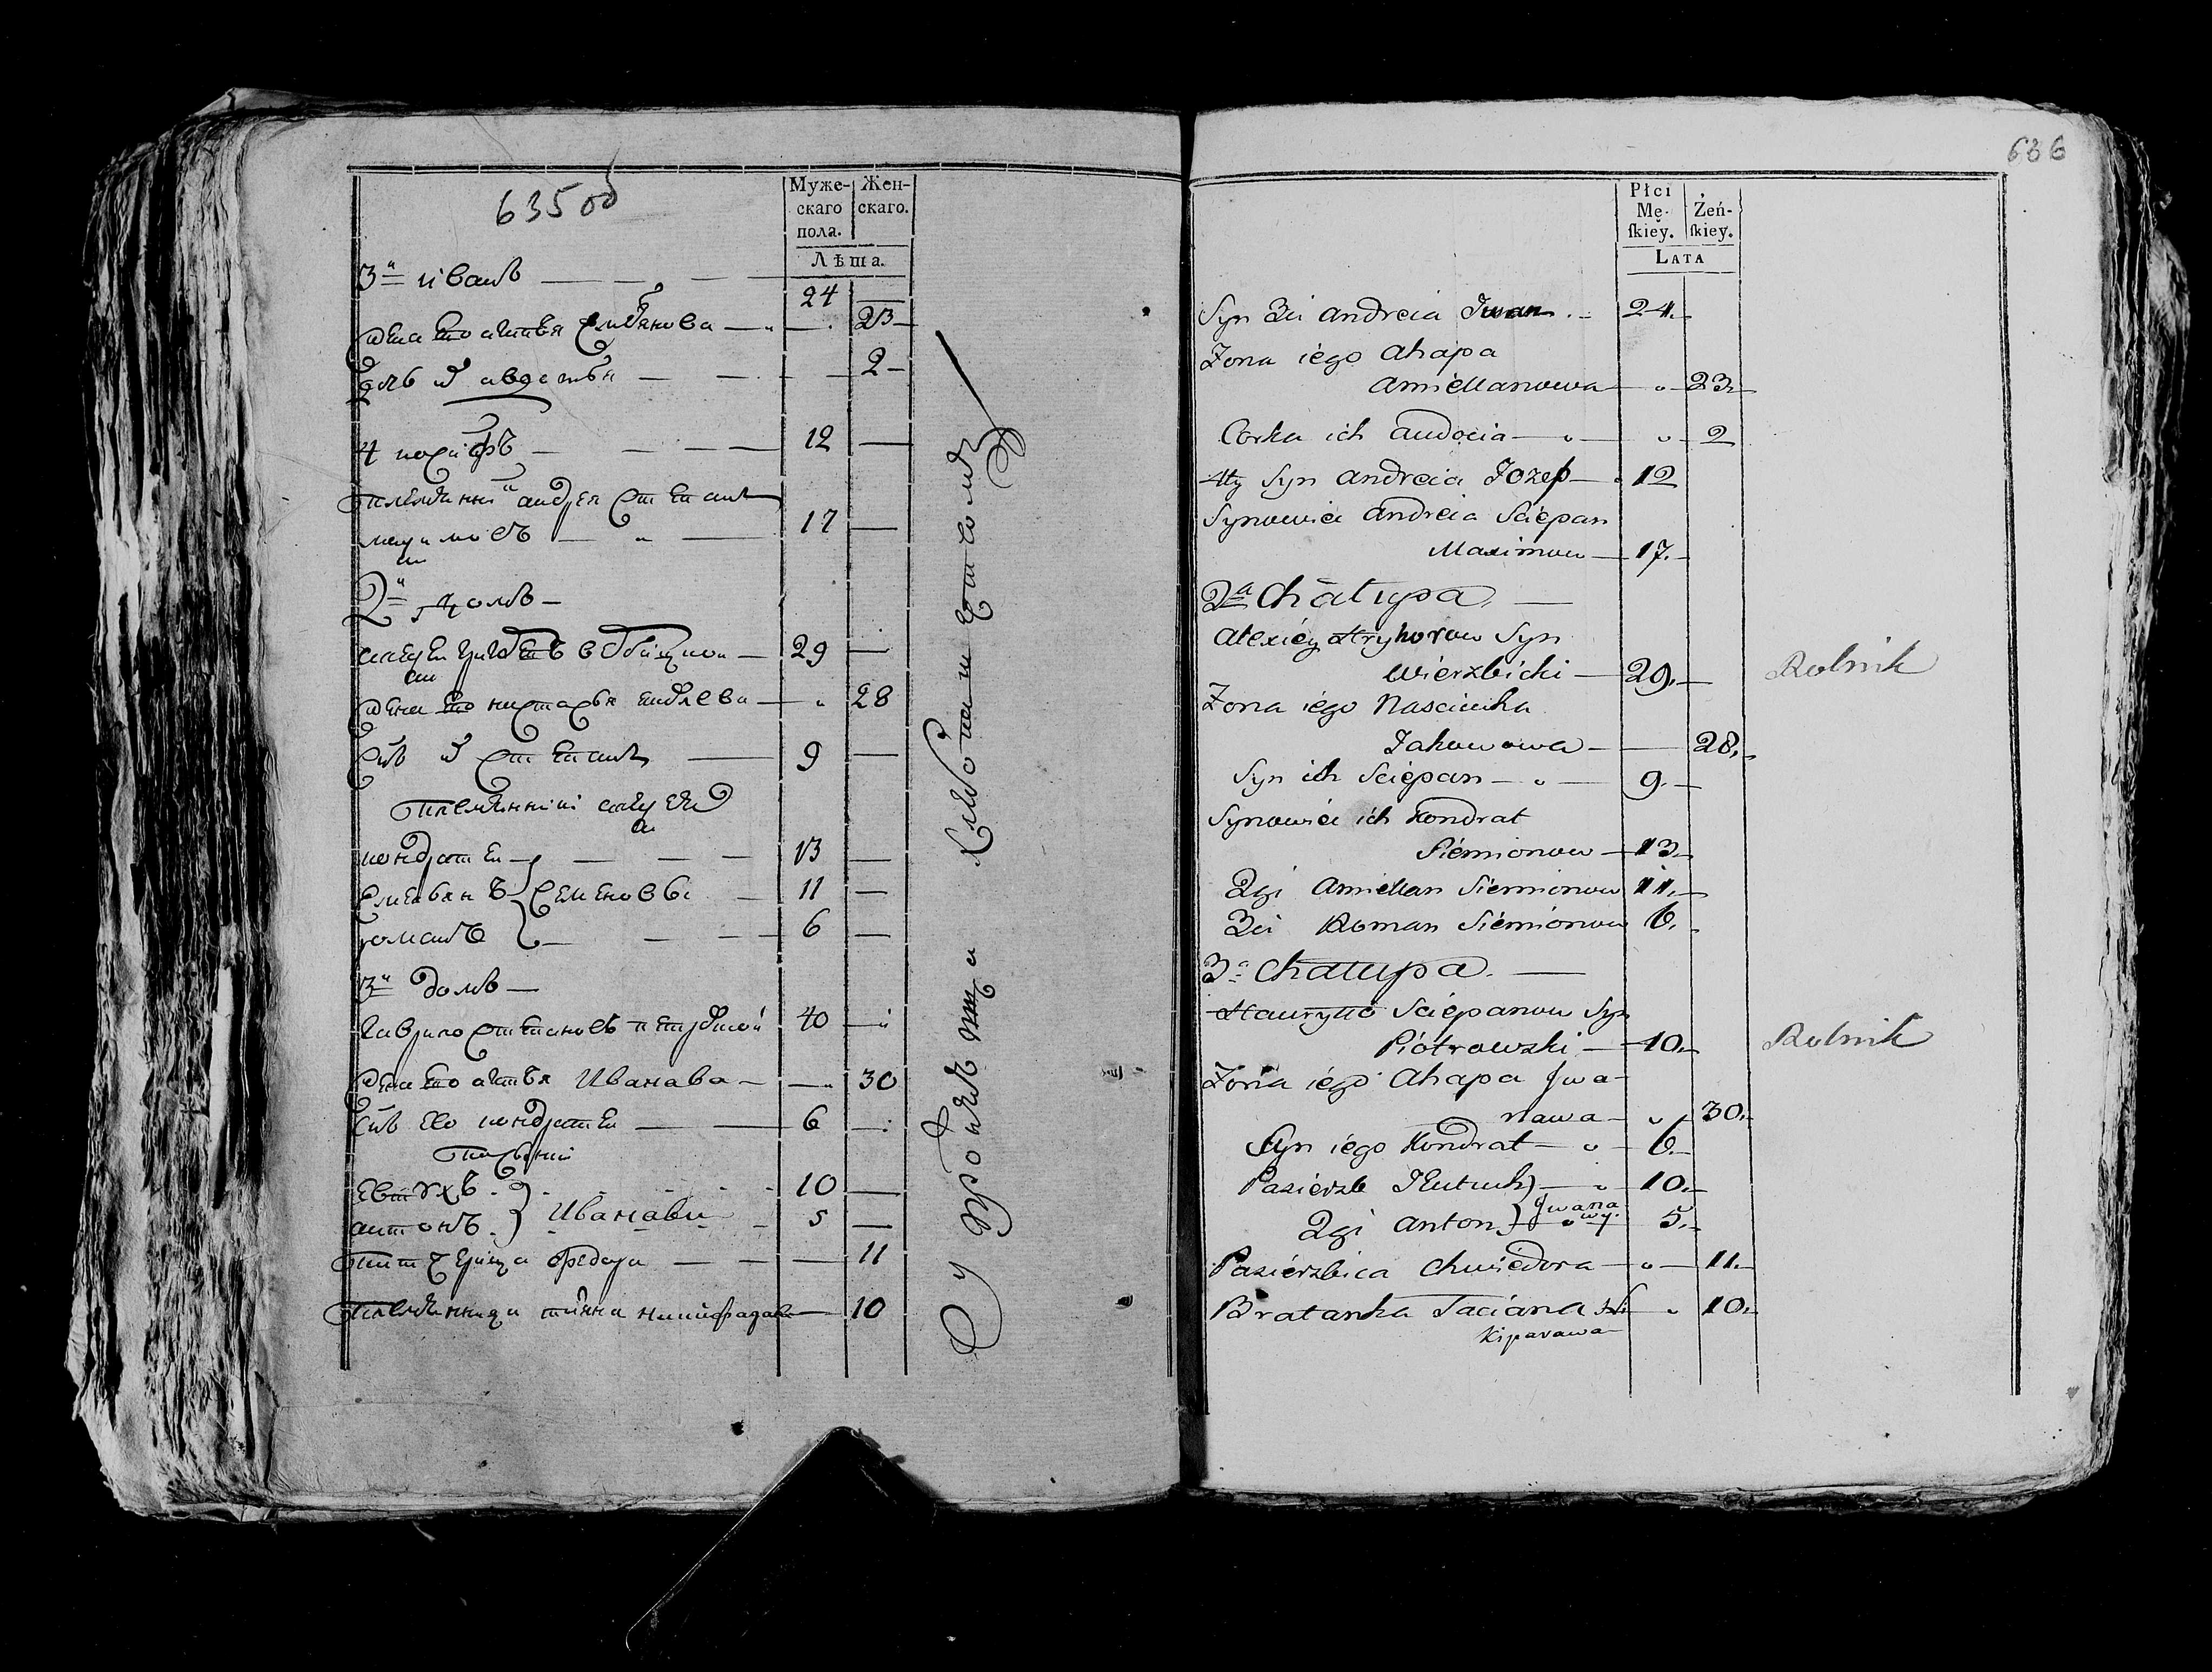 635 об
Муже-
скаго
пола.
Жен-
скаго.
Лѣта.
3й иванъ 24
жена его агапья емельянова 23
дочь их авдотья 2
4 иосифъ 12
племянник андрея степанъ
максимовъ 17
2й домъ
алексей григорьевъ 29
жена его настасья яковлева 28
сынъ их степанъ 9
племянники алексея
кондратей 13
емельянъ } семеновы 11
романъ 6
3й домъ
гаврило степановъ 40
жена его агапья Иванава 30
сынъ его кондратей 6
евтухъ 10
антонъ } Иванавы 5
падчерица федора 11
племянница 10
636
Płci
Mę-
skiey.
Żeń-
skiey.
LATA
Syn 3ci Andreia Iwan 24
Zona iego Ahapa
Amiellanowa 23
Corka ich Audocia 2
4ty Syn Andreia Jozep 12
Synowiec Andreia Sciepan
Maximow 17
2a Chałupa
Alexiey Hryhorow Syn
Wierzbicki 29 Rolnik
Zona iego Nasciucha
Jakowowa 28
Syn ich Sciepan 9
Synowiec ich Kondrat
Siemionow 13
2gi Amiellan Siemionow 11
3ci Roman Siemionow 6
3a Chałupa
Hawryło Sciepanow Syn
Piotrowski 40 Rolnik
Zona iego Ahapa Jwa-
nawa 30
Syn iego Kondrat 6
Pasierzb Jeutuch 10
2gi Anton } Jwana
wy. 5
Pasierzbica Chwiedora 11
Bratanka Taciana Ni- 10
kiparawa